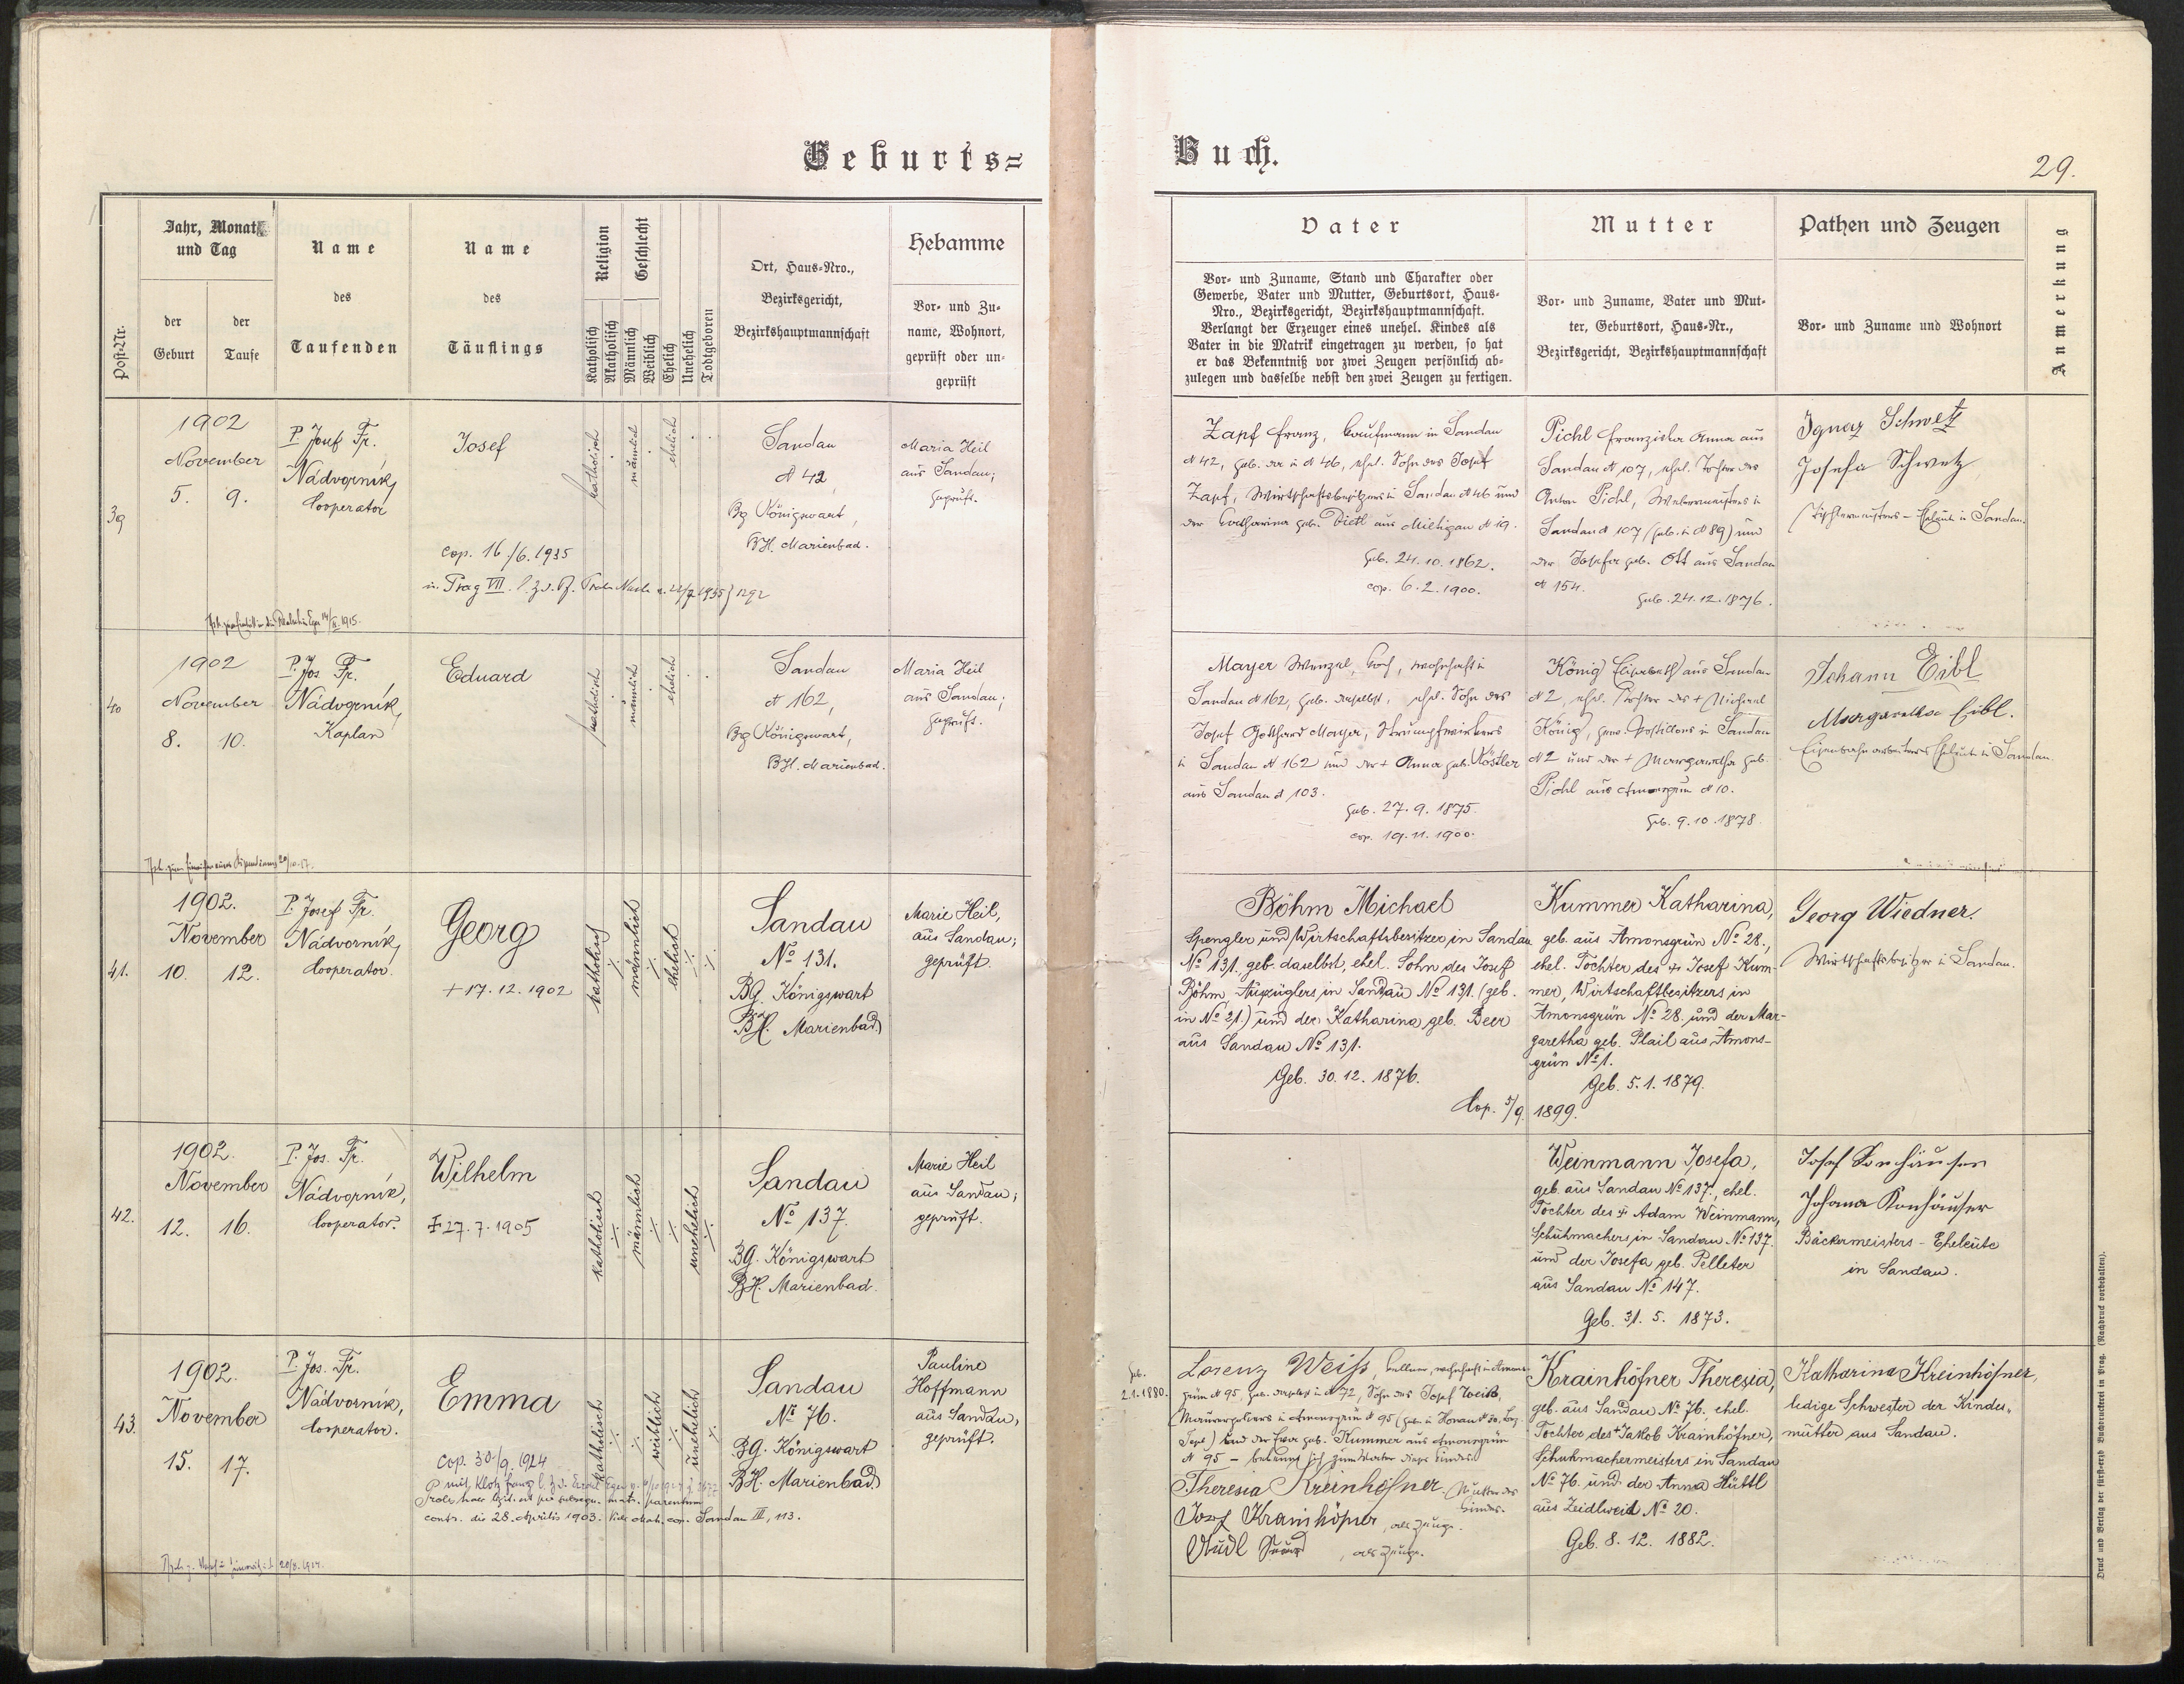 Geburts=
Buch.
29.
Post-Nr.
Jahr, Monat
und Tag
der
Geburt
der
Taufe
Name
des
Taufenden
Name
des
Täuflings
Religion
Katholisch
Akatholisch
Geschlecht
Männlich
Weiblich
Ehelich
Unehelich
Todtgeboren
Ort, Haus-Nro.,
Bezirksgericht,
Bezirkshauptmannschaft
Hebamme
Vor- und Zu-
name, Wohnort,
geprüft oder un-
geprüft
Vater
Vor- und Zuname, Stand und Charakter oder
Gewerbe, Vater und Mutter, Geburtsort, Haus-
Nro., Bezirksgericht, Bezirkshauptmannschaft.
Verlangt der Erzeuger eines unehel. Kindes als
Vater in die Matrik eingetragen zu werden, so hat
er das Bekenntniß vor zwei Zeugen persönlich ab-
zulegen und dasselbe nebst den zwei Zeugen zu fertigen.
Mutter
Vor- und Zuname, Vater und Mut-
ter, Geburtsort, Haus-Nr.,
Bezirksgericht, Bezirkshauptmannschaft
Pathen und Zeugen
Vor- und Zuname und Wohnort
Anmerkung
39
1902
November
5. 9.
P. Josef Fr.
Nádvorník,
Cooperator
Josef
cop. 16./6. 1935
in Prag VII.
katholisch
männlich
ehelich
Sandau
N 42,
Bg Königswart,
BH. Marienbad.
Maria Heil
aus Sandau;
geprüft.
Zapf Franz, Kaufmann in Sandau
N 42, geb. da in N 46, ehel. Sohn des Josef
Zapf, Wirtschaftsbesitzers in Sandau N 46 und
der Katharina geb. Dietl aus Miltigau N 19.
Geb. 24. 10. 1862.
cop. 6. 2. 1900.
Pichl Franziska Anna aus
Sandau N 107, ehel. Tochter des
Anton Pichl, Webermeisters in
Sandau N 107 (geb. in N 89) und
der Josefa geb. Ott aus Sandau
N 154.
Geb. 24. 12. 1876.
Ignaz Schwetz
Josefa Schwetz
Tischlermeisters-Eheleute in Sandau.
40
1902
November
8. 10.
P. Jos. Fr.
Nádvorník,
Kaplan
Eduard
katholisch
männlich
ehelich
Sandau
N 162,
Bg Königswart,
BH. Marienbad.
Maria Heil
aus Sandau;
geprüft.
Mayer Wenzel, Koch, wohnhaft in
Sandau N 162, geb. daselbst, ehel. Sohn des
Josef Gotthard Mayer, Strumpfwirkers
in Sandau N 162 und der + Anna geb. Köstler
aus Sandau N 103.
Geb. 27. 9. 1875.
cop. 19. 11. 1900.
König Elisabeth aus Sandau
N 2, ehel. Tochter des + Michael
König, gew. Postillons in Sandau
N 2 und der + Margaretha geb.
Pichl aus Amonsgrün N 10.
Geb. 9. 10. 1878.
Johann Eibl
Margaretha Eibl.
Eisenbahnarbeiters Eheleute in Sandau.
41.
1902.
November
10. 12.
P. Josef Fr.
Nádvorník,
Cooperator.
Georg
+ 17. 12. 1902
katholisch
männlich
ehelich
Sandau
No 131.
BG. Königswart
BH. Marienbad
Marie Heil,
aus Sandau;
geprüft.
Böhm Michael
Spengler und Wirtschaftsbesitzer in Sandau
No 131. geb. daselbst, ehel. Sohn des Josef
Böhm, Auszüglers in Sandau No 131. (geb.
in No 21.) und der Katharina geb. Beer
aus Sandau No 131.
Geb. 30. 12. 1876.
Cop. 5/9. 1899.
Kummer Katharina,
geb. aus Amonsgrün No 28.,
ehel. Tochter des + Josef Kum-
mer, Wirtschaftbesitzers in
Amonsgrün No 28. und der Mar-
garetha geb. Plail aus Amons-
grün No 1.
Geb. 5. 1. 1879.
Georg Wiedner.
Wirtschaftsbesitzer in Sandau.
42.
1902.
November
12. 16.
P. Jos. Fr.
Nádvorník,
Cooperator.
Wilhelm
+ 27. 7. 1905
katholisch
männlich
unehelich
Sandau
No 137.
BG. Königswart
BH. Marienbad.
Marie Heil
aus Sandau;
geprüft.
Weinmann Josefa,
geb. aus Sandau No 137., ehel.
Tochter des + Adam Weinmann,
Schuhmachers in Sandau No 137.
und der Josefa geb. Pelleter
aus Sandau No 147.
Geb. 31. 5. 1873.
Josef Konhäuser
Johana Konhäuser
Bäckermeisters-Eheleute
in Sandau.
43.
1902.
November
15. 17.
P. Jos. Fr.
Nádvorník,
Cooperator.
Emma
cop. 30/9. 1924
Prolis haec legit. est per subsequ. matr. parentum
contr. die 28. Aprilis 1903. Vide Matr. cop. Sandau III, 113.
katholisch
weiblich
unehelich
Sandau
No 76.
BG. Königswart
BH. Marienbad
Pauline
Hoffmann
aus Sandau,
geprüft.
geb.
2.1.1880.
Lorenz Weiß, Kellner, wohnhaft in Amons-
grün N 95, geb. daselbst in N 72, Sohn des Josef Weiß,
Maurerpoliers in Amonsgrün N 95
und der Eva geb. Kummer aus Amonsgrün
N 95 - bekennt sich zum Vater dieses Kindes.
Theresia Kreinhöfner. Mutter des
Kindes.
Josef Krainhöfner, als Zeuge.
, als Zeuge.
Krainhöfner Theresia,
geb. aus Sandau No 76. ehel.
Tochter des + Jakob Krainhöfner,
Schuhmachermeisters in Sandau
No 76. und der Anna Hüttl
aus Zeidlweid No 20.
Geb. 8. 12. 1882.
Katharina Kreinhöfner,
ledige Schwester der Kindes-
mutter aus Sandau.
Druck und Verlag der fürst-erzb Buchdruckerei in Prag. (Nachdruck vorbehalten).